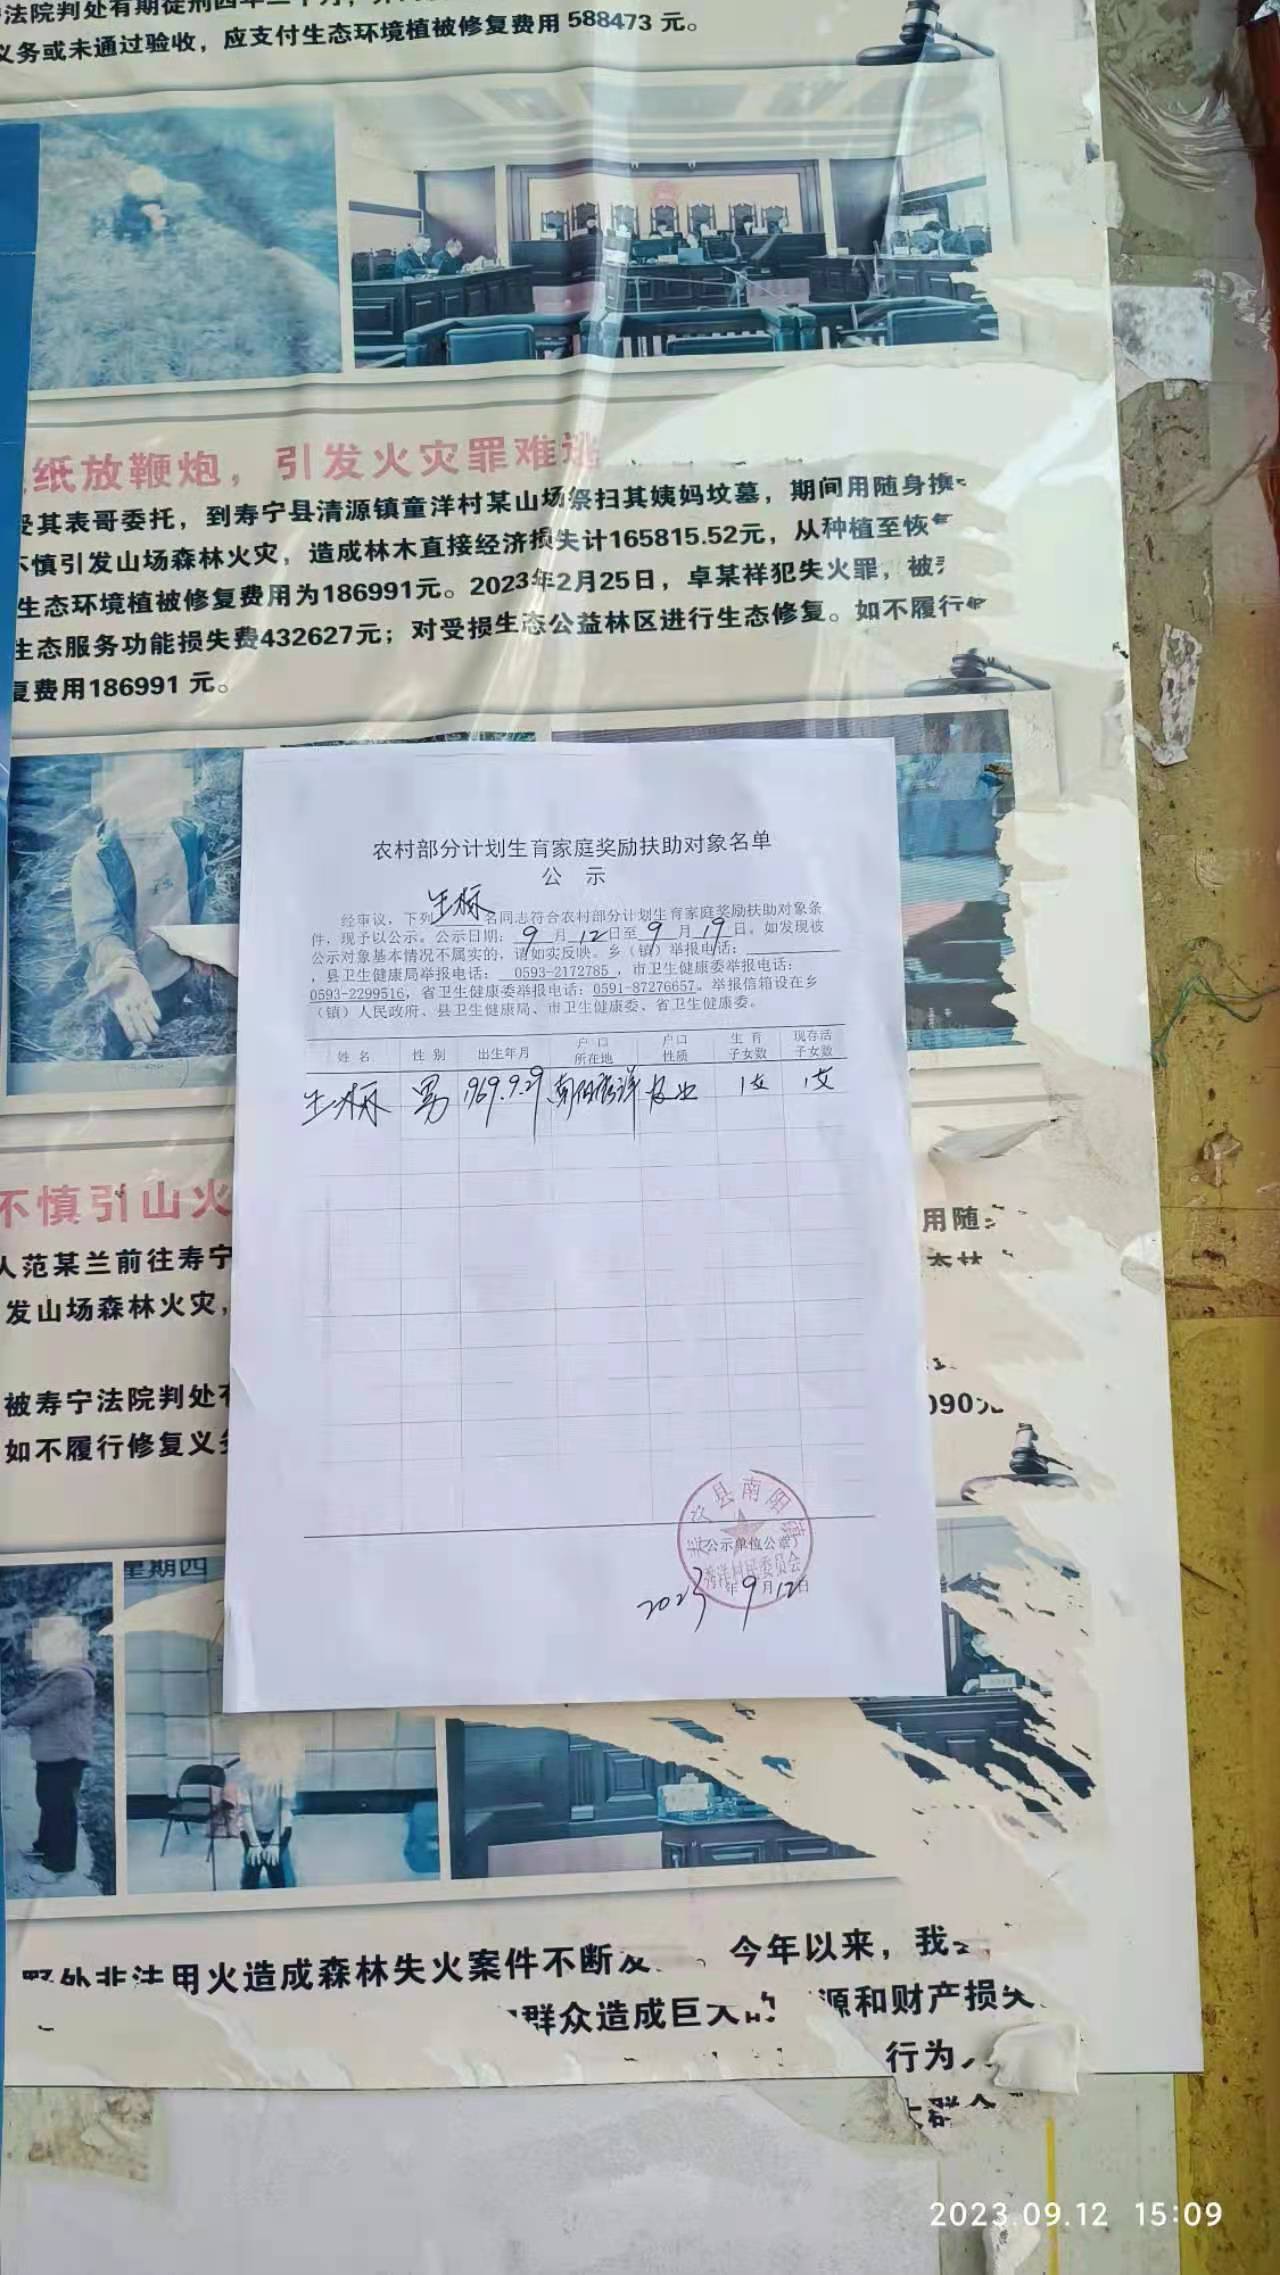 法院判处有期徒刑四年二个月，
义务或未通过验收，应支付生态环境植被修复费用 588473 元。
纸放鞭炮，引发火灾罪难逃
受其表哥委托，到寿宁县清源镇童洋村某山场祭扫其姨妈坟墓，期间用随身携
不慎引发山场森林火灾，造成林木直接经济损失计165815.52元，从种植至恢
生态环境植被修复费用为186991元。2023年2月25日，卓某祥犯失火罪，被
生态服务功能损失费432627元；对受损生态公益林区进行生态修复。如不履行
复费用186991 元。
农村部分计划生育家庭奖励扶助对象名单
公 示
经审议，下列 名同志符合农村部分计划生育家庭奖励扶助对象条
件，现予以公示。公示日期：9月12日至9月19日。如发现被
公示对象基本情况不属实的，请如实反映。乡（镇）举报电话：
，县卫生健康局举报电话：0593-2172785，市卫生健康委举报电话：
0593-2299516，省卫生健康委举报电话：0591-87276657。举报信箱设在乡
（镇）人民政府、县卫生健康局、市卫生健康委、省卫生健康委。
姓 名 性 别 出生年月 户 口 所在地 户口 性质 生 育 子女数 现存活 子女数
男 1969.9.29 南阳秀洋 农业 1女 1女
宁县南阳镇
（公示单位公章）
秀洋村民委员会
2023年9月12日
不慎引山火
人范某兰前往寿宁
用随
发山场森林火灾，
被寿宁法院判处有
090元
如不履行修复义务
星期四
野外非法用火造成森林失火案件不断发 。今年以来，我
群众造成巨大的 源和财产损失
行为
群众
2023.09.12 15:09